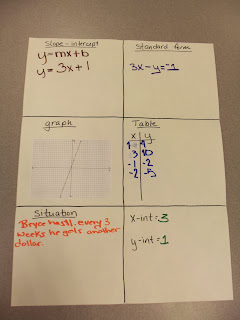 Slope-intercept
y=mx+b
y=3x+1
Standard form
3x-y=-1
graph
Table
x y
3 10
-1 -2
-2 -5
Situation
Bryce has $1. every 3
weeks he gets another
dollar.
x-int=3
y-int=1